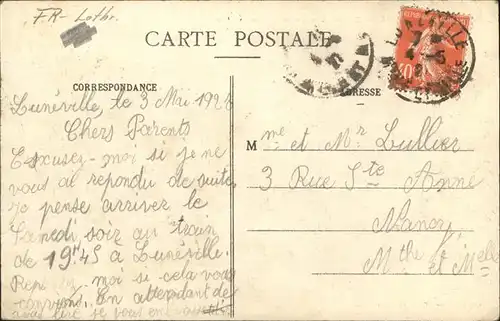 FR- Lothr.
CARTE POSTALE
LUNEVILLE
CORRESPONDANCE
ADRESSE
Lunéville, le 3 Mai 192
Chers Parents
Excusez-moi si je ne
vous ai répondu de suite
je pense arriver le
Samedi soir au train
de 19h45 à Lunéville.
moi si cela vous
En attendant de
vous lire je vous
M me et Mr Lullier
3 Rue Ste Anne
Nancy
Mthe et Melle